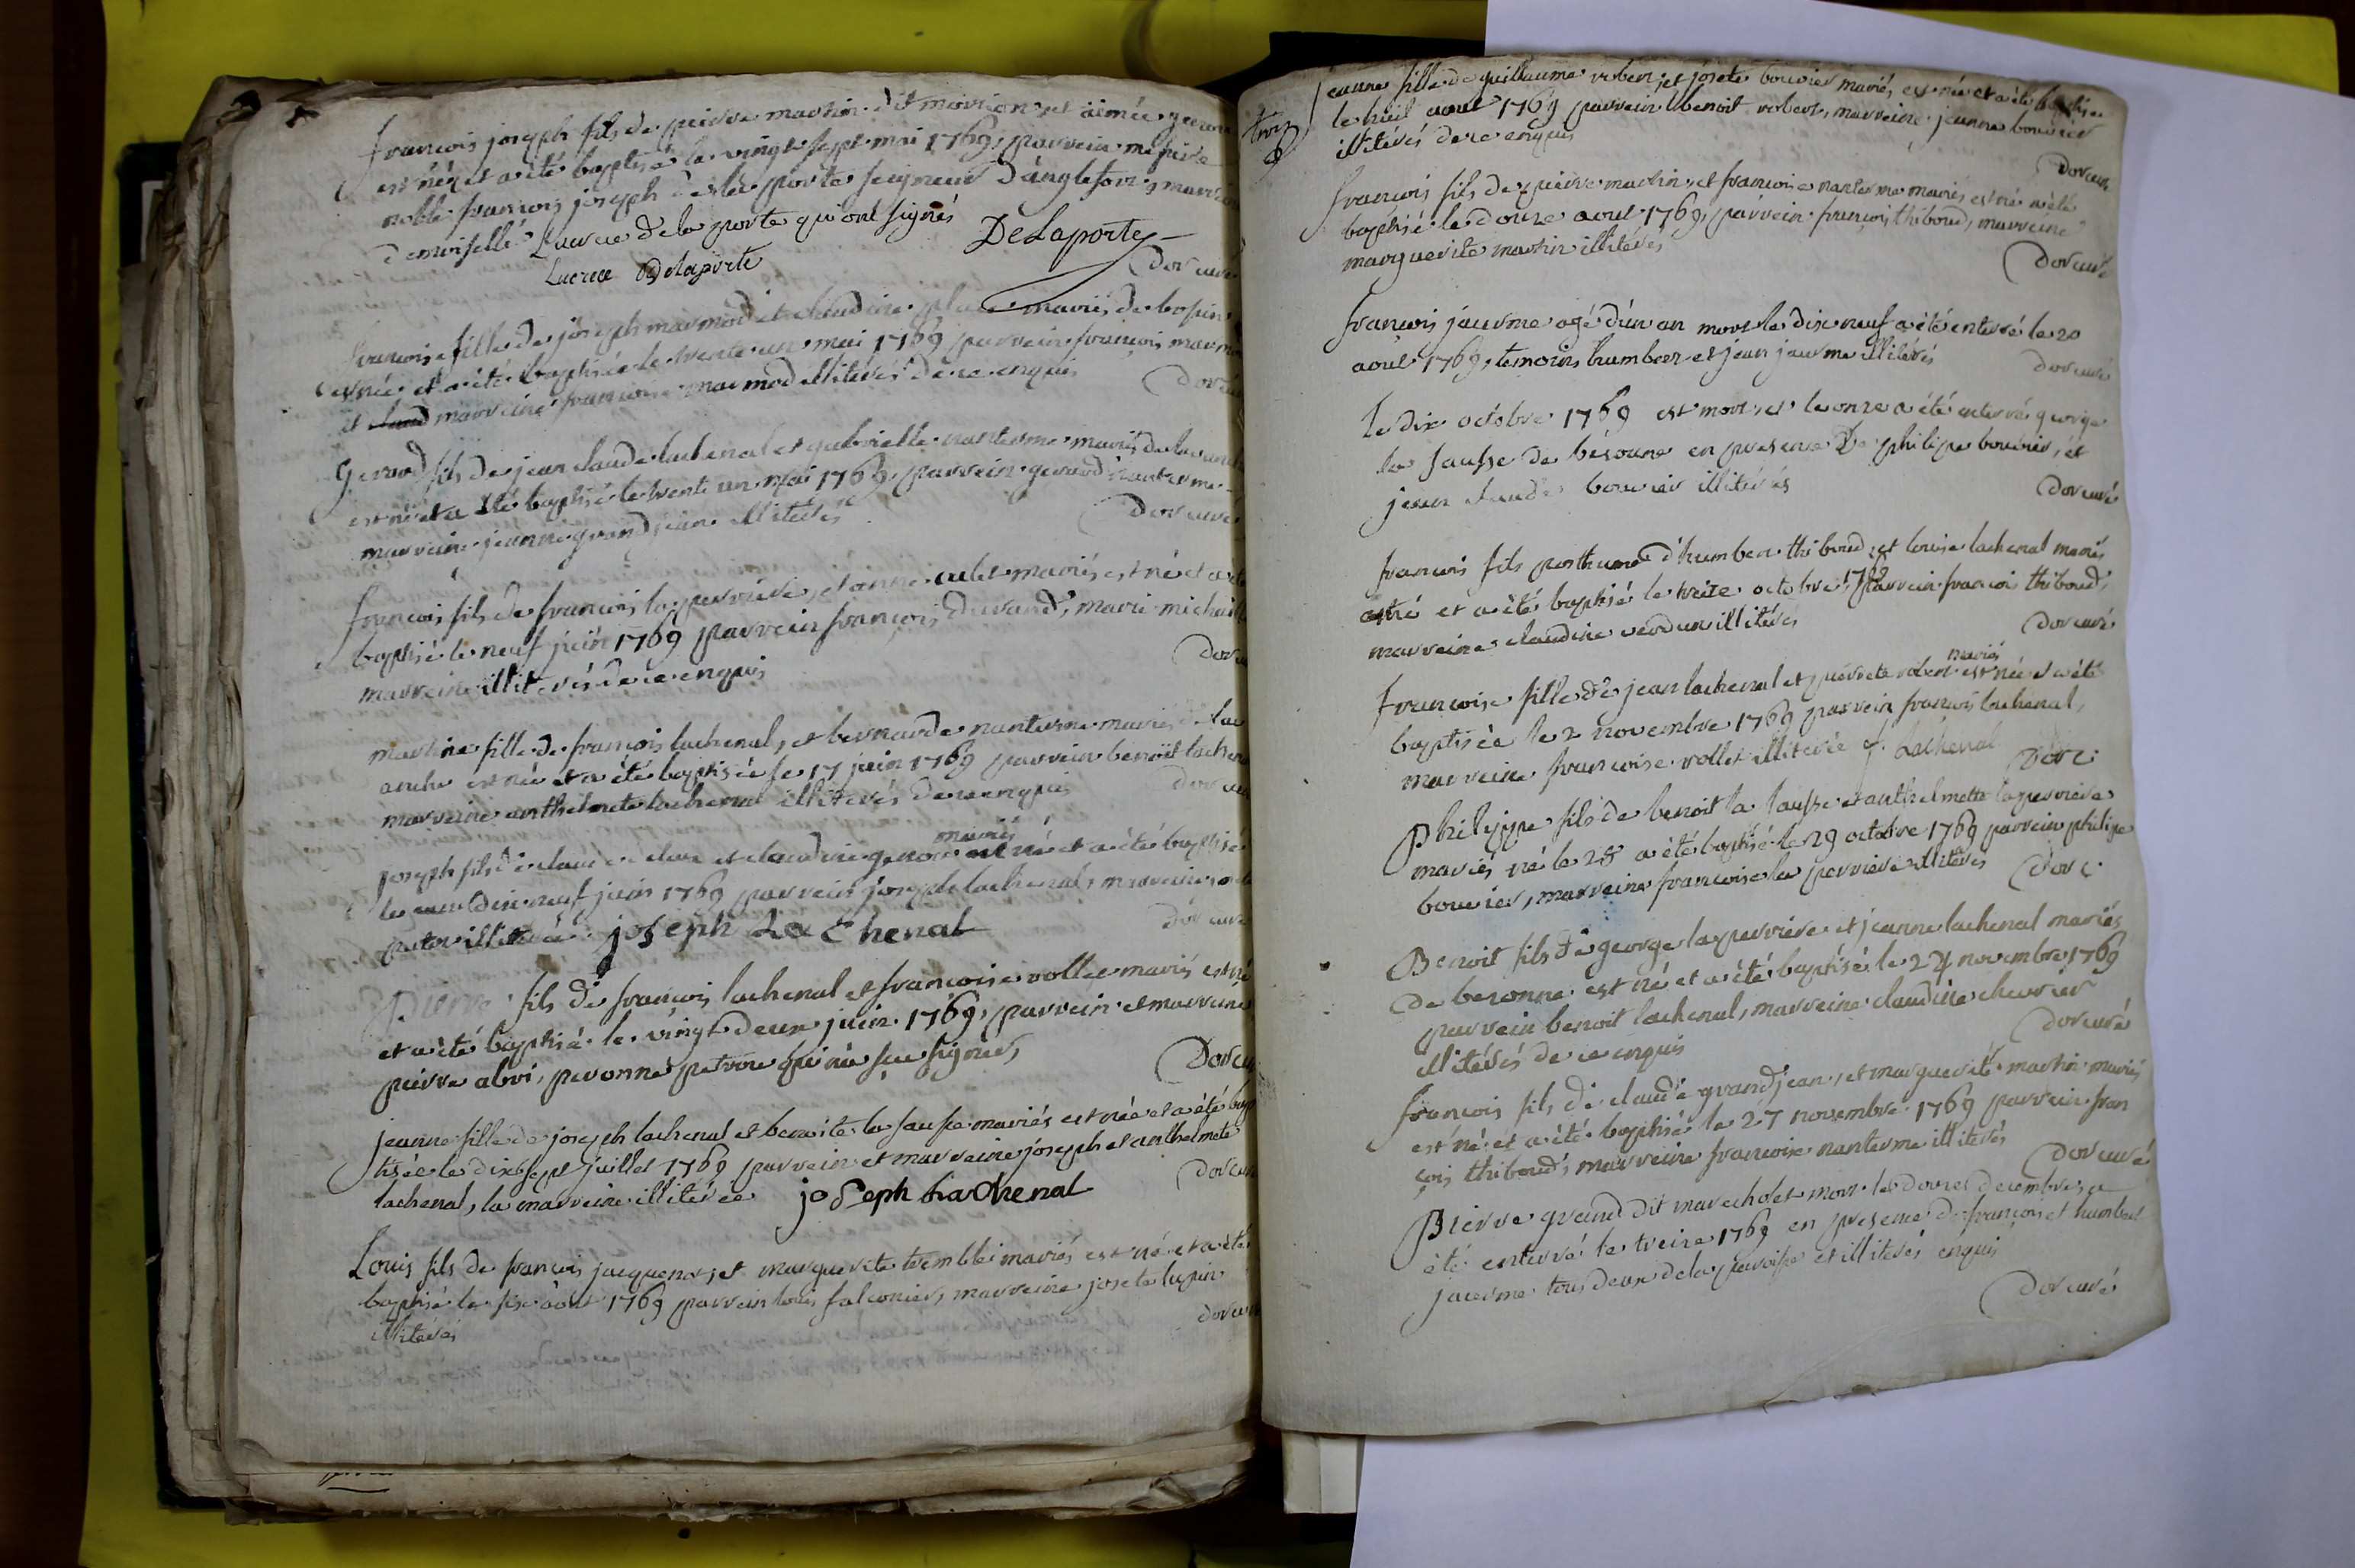 françois joseph fils de pierre martin dit morion et aimée
est né et a été baptisé le vingt sept mai 1769, parrein
noble françois joseph de la porte seigneur d'anglefort,
demoiselle Lucrece de la porte qui ont signés
DeLaporte
Lucrece Delaporte
dor curé
françoise fille de joseph marmod et claudine mariés de
est née et a été baptisée le trente un mai 1769 parrein françois
et marreine françoise marmod illiterés de ce enquis
dor
Gerard fils de jean claude lachenal et gabrielle nanterme mariés
est né et a été baptisé le trente un mai 1769, parrein gerard nanterme
marreine jeanne grandjean illiterés
dor curé
françois fils de françois laperriere, et anne mariés est né et a
baptisé le neuf juin 1769 parrein françois durand, marie
marreine illiterés de ce enquis
dor
martine fille de françois lachenal, et bernarde nanterme mariés de
est née et a été baptisée le 17 juin 1769 parrein benoit
marreine anthelmete lachenal illiterés de ce enquis
dor
joseph fils de et claudine mariés né et a été baptisé
le dix neuf juin 1769 parrein joseph lachenal, marreine
illiterée joseph La Chenal
dor curé
Pierre fils de françois lachenal et françoise rollet mariés est né
et a été baptisé le vingt deux juin 1769, parrein et marreine
pierre peronne qui n'a sçu signer,
Dor cu
jeanne fille de joseph lachenal et benoite la sausse mariés est née et a été bap
tisée le dix sept juillet 1769 parrein et marreine joseph et anthelmete
lachenal, la marreine illiterée joSeph Lachenal
dor cu
Louis fils de françois jacquenot, et marguerite tremblé mariés est né et a été
baptisé le six août 1769 parrein louis falconier, marreine josete lupin
illiterés
dor curé
jeanne fille de guillaume robert, et josete bouvier mariés, est née et a été baptisée
le huit aout 1769 parrein benoit robert, marreine jeanne bouvier
illiterés de ce enquis
Dor cur
françois fils de pierre martin, et françoise nanterme mariés est né a été
baptisé le douze aout 1769, parrein françois thiboud, marreine
marguerite martin illiterés
Dor curé
françois jacerme agé d'un an mort le dix neuf a été enterré le 20
aout 1769, temoins humbert et jean jacerme illiterés
dor curé
Le dix octobre 1769 est mort, et le onze a été enterré george
la sausse de bésoune en presence de philipe bouvier, et
jean claude bouvier illiterés
Dor curé
françois fils posthume d'humbert thiboud, et louise lachenal mariés
est né et a été baptisé le treize octobre 1769 parrein françois thiboud,
marreine claudine verdun illiterés
dor curé
françoise fille de jean lachenal et perrete robert mariés est née et a été
baptisée le 2 novembre 1769 parrein françois lachenal,
marreine françoise rollet illiterée f. Lachenal
Dor c.
Philippe fils de benoit la sausse et anthelmette laperriere
mariés né le 28 a été baptisé le 29 octobre 1769 parrein philipe
bouvier, marreine françoise la perriere illiterés
dor c.
Benoit fils de george laperriere et jeanne lachenal mariés
de besonne est né et a été baptisé le 24 novembre 1769
parrein benoit lachenal, marreine claudine chevrier
illiterés de ce enquis
dor curé
françois fils de claude grandjean, et marguerite martin mariés
est né et a été baptisé le 27 novembre 1769 parrein fran
çois thiboud, marreine françoise nanterme illiterés
dor curé
Pierre dit marecholet mort le douze decembre, a
été enterré le treize 1769 en presence de françois et humbert
jacerme tous deux de la paroisse et illiterés enquis
dor curé